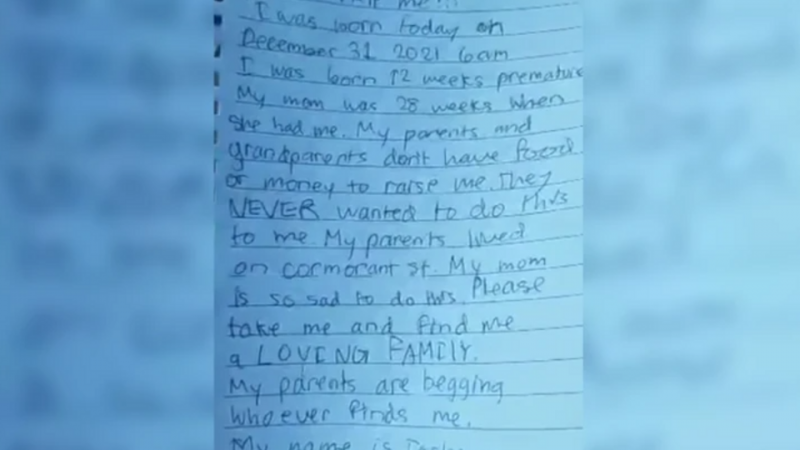 me!!!
I was born today on
December 31 2021 6am
I was born 12 weeks premature
My mom was 28 weeks when
she had me. My parents and
grandparents dont have food
or money to raise me. They
NEVER wanted to do this
to me. My parents lived
on cormorant st. My mom
is so sad to do this. Please
take me and find me
a LOVING FAMILY.
My parents are begging
whoever finds me.
My name is